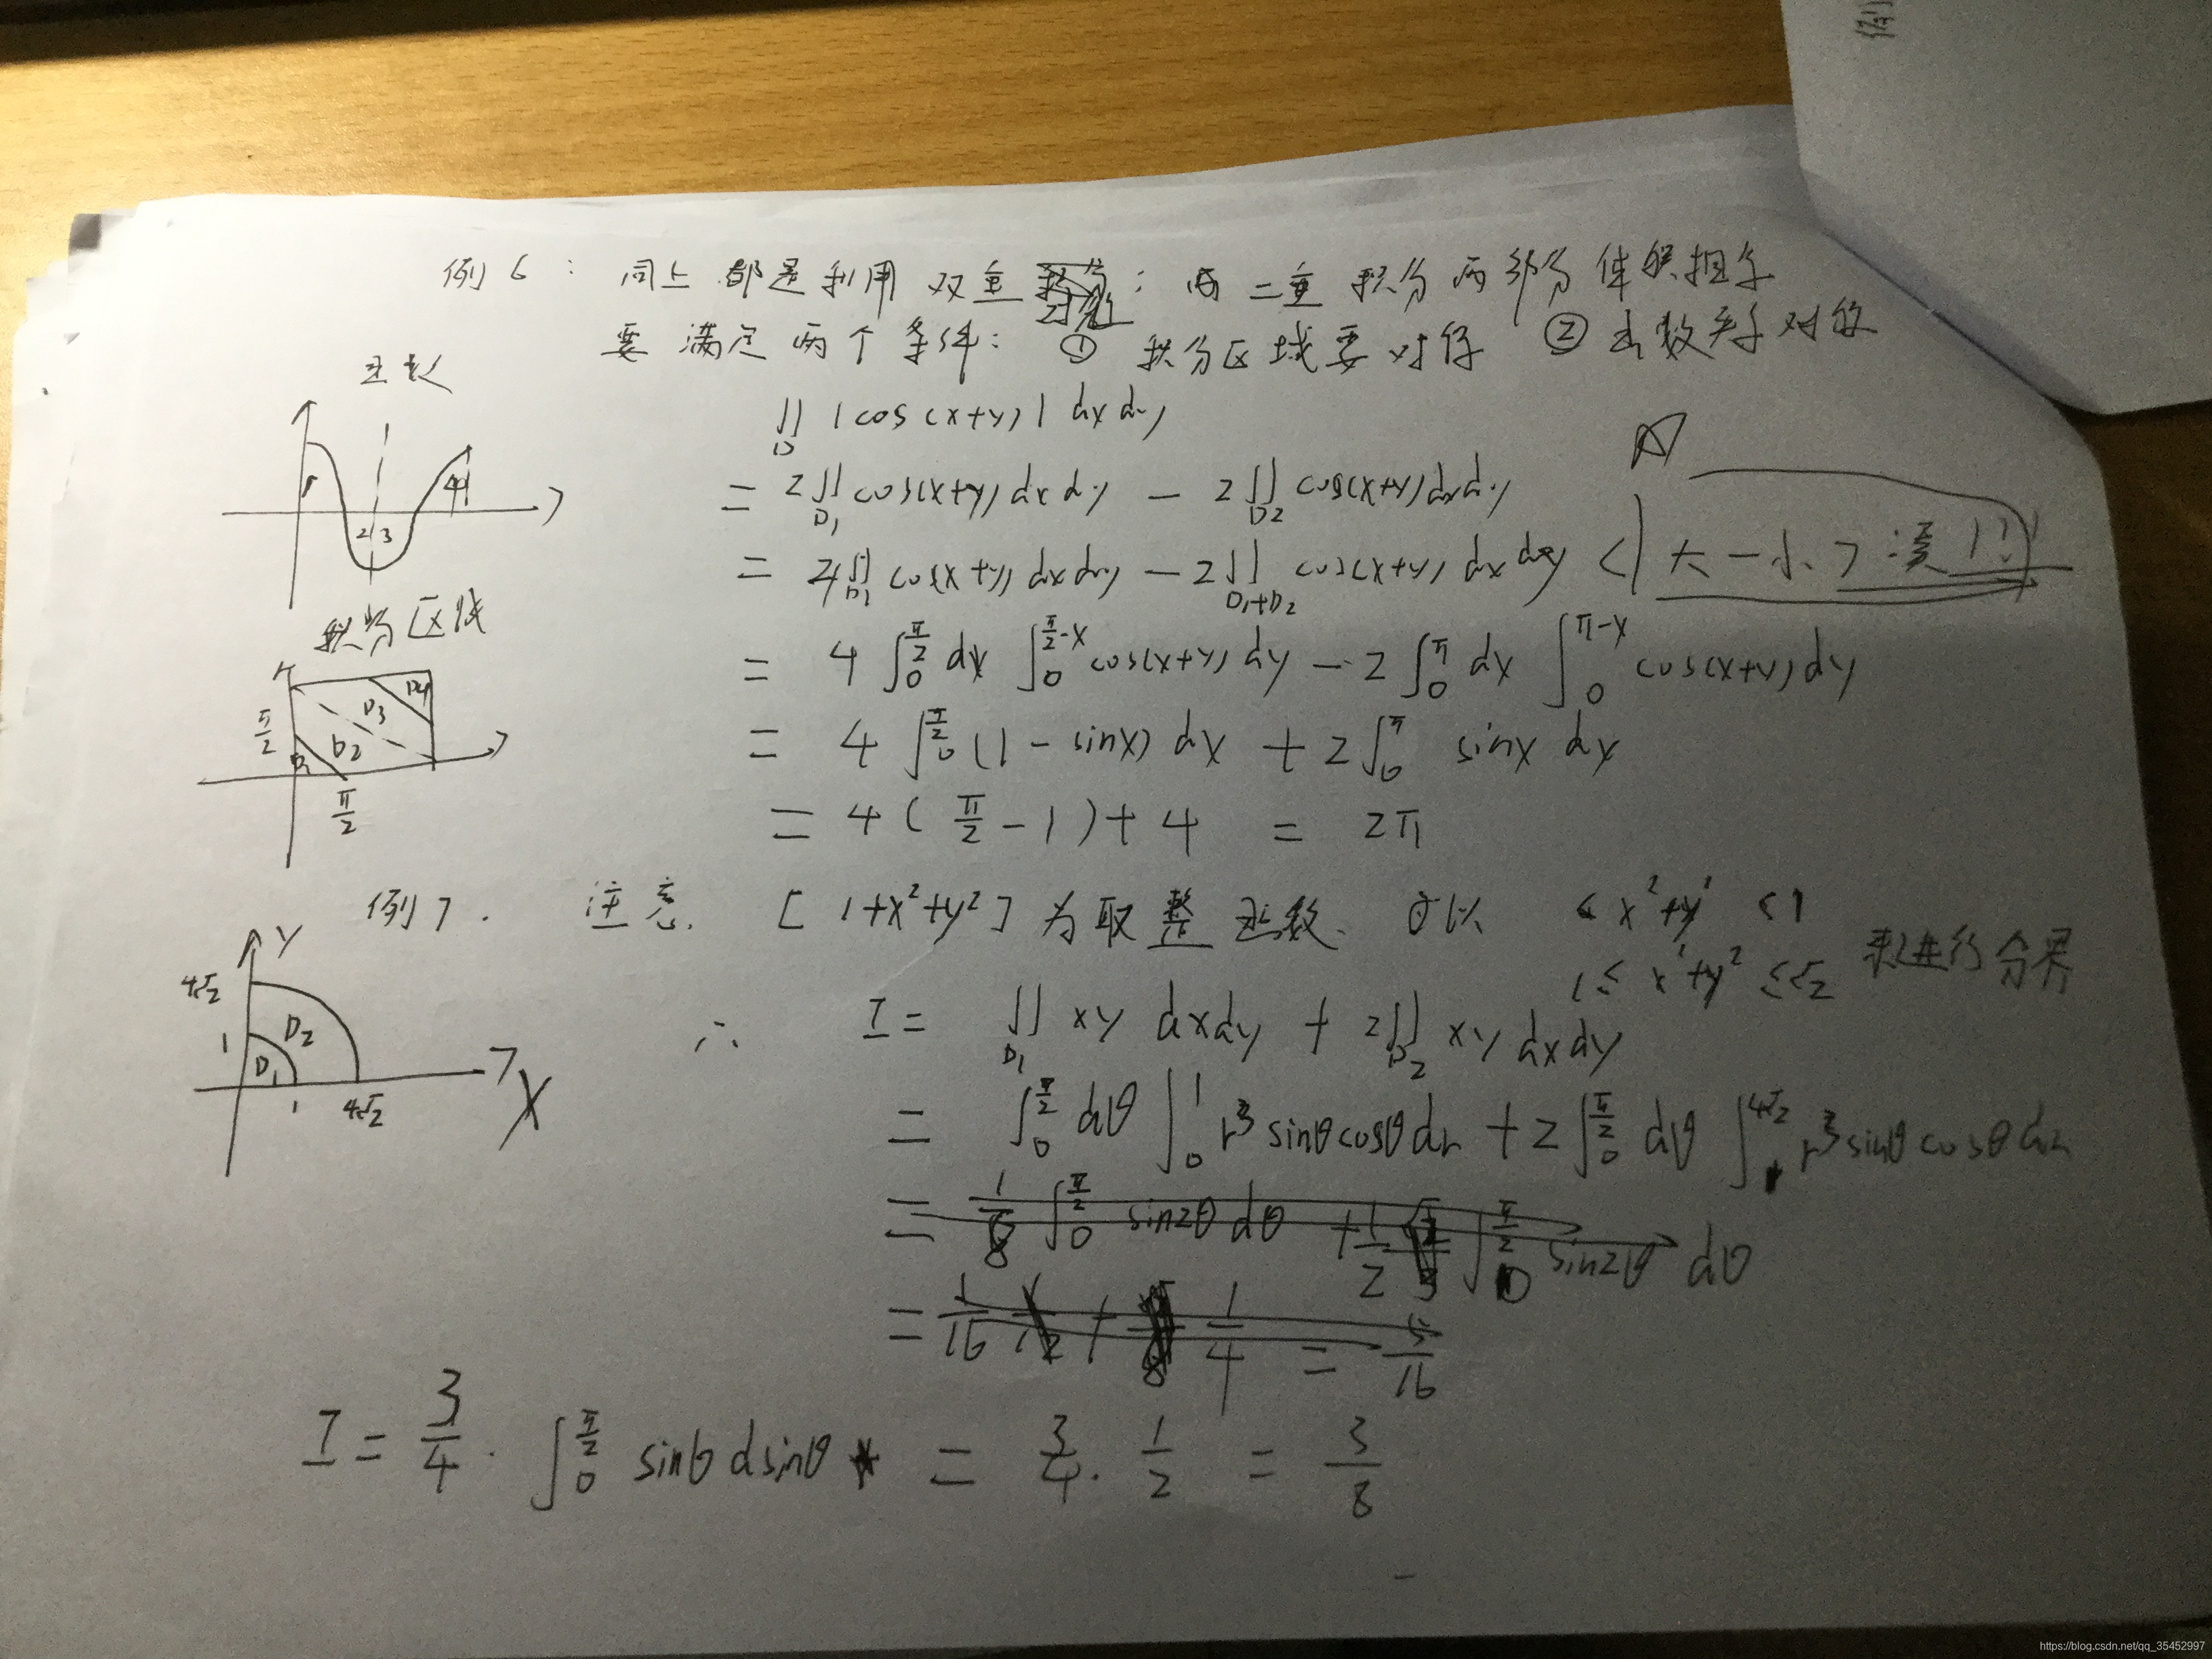 例
例6： 同上都是利用双重对称：两二重积分两部分体积相等
要满足两个条件：① 积分区域要对称 ② 函数关于对称
函数
1 2 3 4
∬_D |cos(x+y)| dxdy
= 2∬_{D₁} cos(x+y) dxdy − 2∬_{D2} cos(x+y) dxdy
= 4∬_{D₁} cos(x+y) dxdy − 2∬_{D₁+D₂} cos(x+y) dxdy
大一小 了 凑
= 4∫_0^{π/2} dx ∫_0^{π/2-x} cos(x+y) dy − 2∫_0^π dx ∫_0^{π-x} cos(x+y) dy
积分区域
π/2 D₁ D2 D3 D4
π/2
= 4∫_0^{π/2} (1 − sinx) dx + 2∫_0^π sinx dx
= 4(π/2 − 1) + 4 = 2π
例7. 注意. [1+x²+y²] 为取整函数. 可以 ≤ x²+y² < 1
1 ≤ x²+y² ≤ √2 来进行分界
Y
4√2
1 D₁ D₂
1 4√2 X
∴ I = ∬_{D₁} xy dxdy + 2∬_{D₂} xy dxdy
= ∫_0^{π/2} dθ ∫_0^1 r³ sinθcosθ dr + 2∫_0^{π/2} dθ ∫_1^{4√2} r³ sinθ cosθ dr
= 1/8 ∫_0^{π/2} sin2θ dθ + 1/2 ∫_0^{π/2} sin2θ dθ
= 1/16 + 1/4 = 5/16
I = 3/4 · ∫_0^{π/2} sinθ dsinθ = 3/4 · 1/2 = 3/8
https://blog.csdn.net/qq_35452997